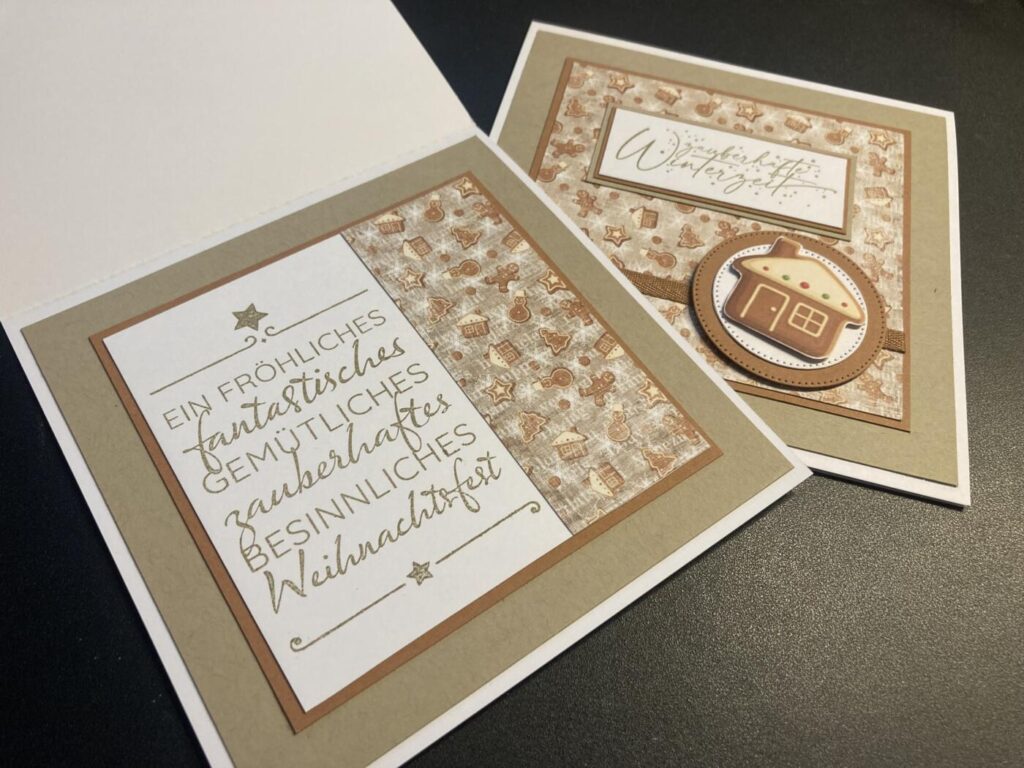 EIN FRÖHLICHES
fantastisches
GEMÜTLICHES
zauberhaftes
BESINNLICHES
Weihnachtsfest
zauberhafte
Winterzeit